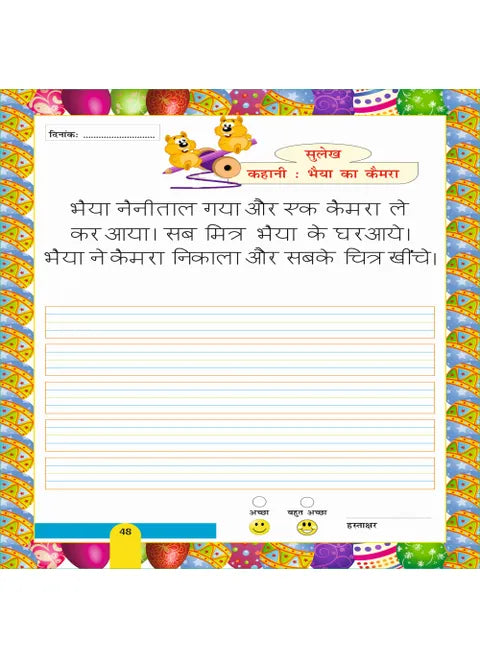 दिनांक: ............................
सुलेख
कहानी : भैया का कैमरा
भैया नैनीताल गया और एक कैमरा ले
कर आया। सब मित्र भैया के घर आये।
भैया ने कैमरा निकाला और सबके चित्र खींचे।
अच्छा बहुत अच्छा
हस्ताक्षर
48